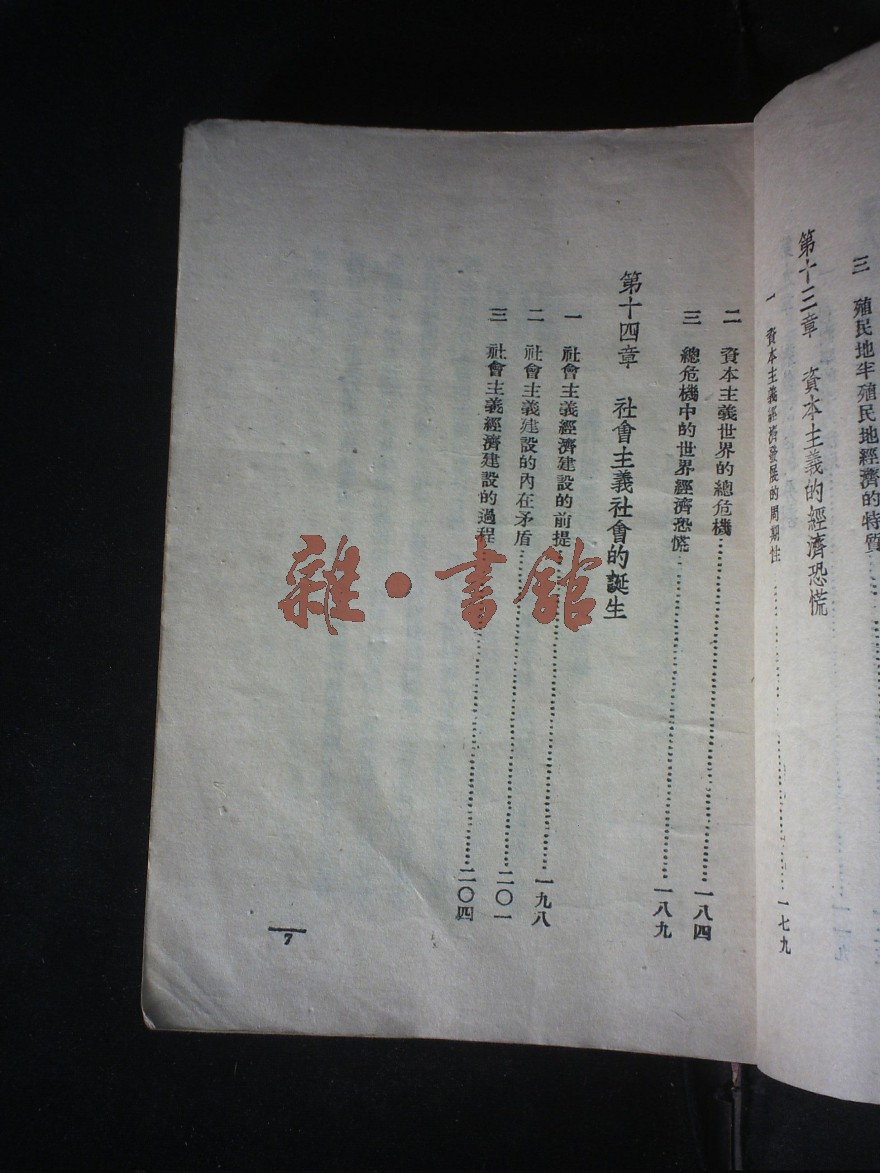 三 殖民地半殖民地經濟的特質
第十三章 資本主義的經濟恐慌
一 資本主義經濟發展的周期性……一七九
二 資本主義世界的總危機……一八四
三 總危機中的世界經濟恐慌……一八九
第十四章 社會主義社會的誕生
一 社會主義經濟建設的前提……一九八
二 社會主義建設的內在矛盾……二〇一
三 社會主義經濟建設的過程……二〇四
7
雜·書館